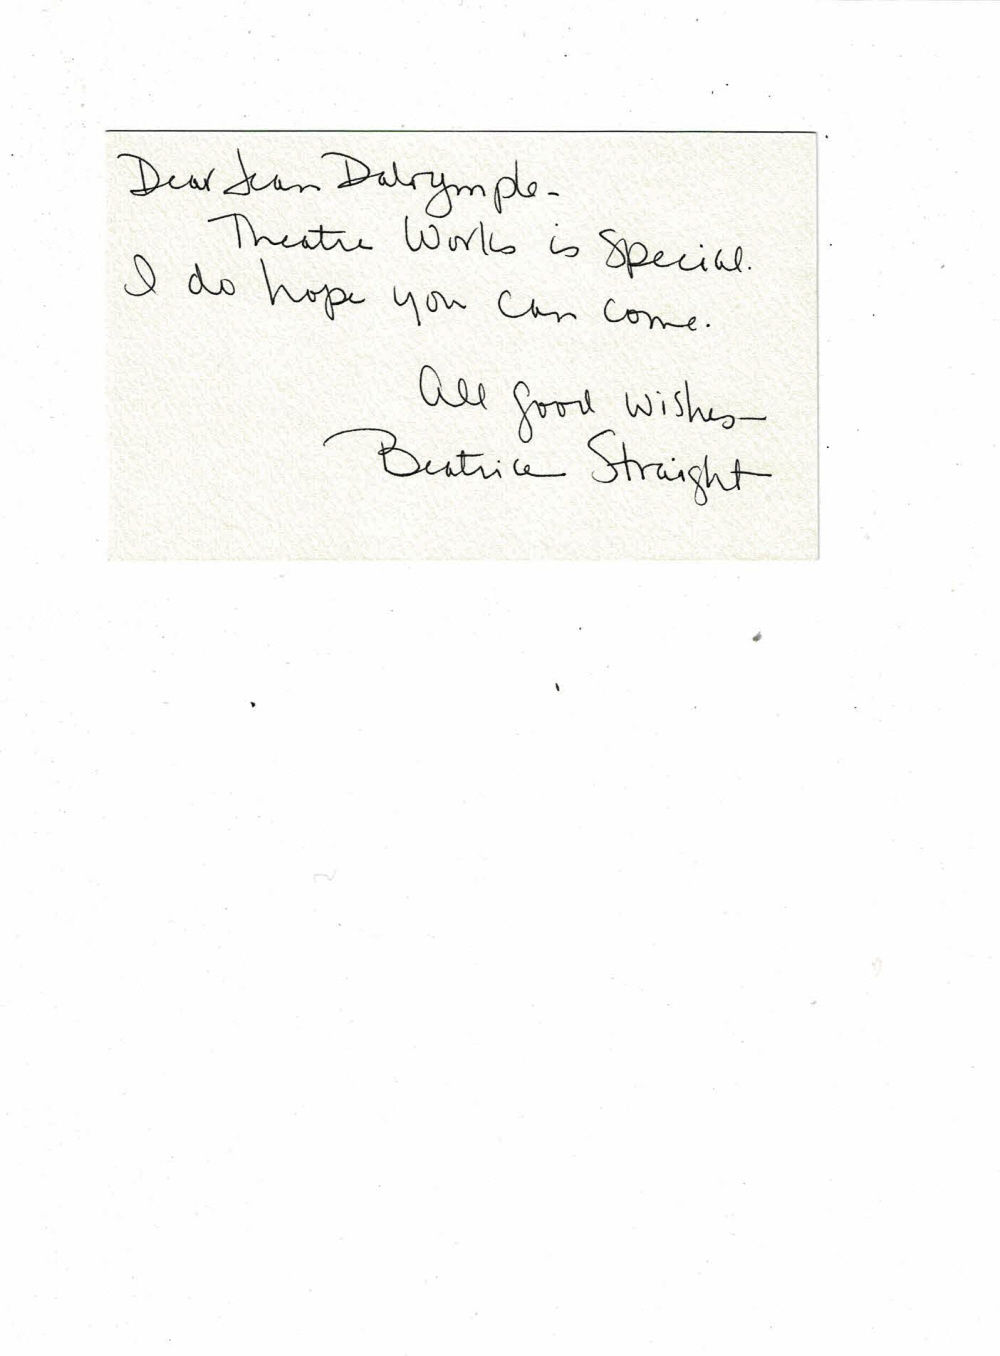 Dear Jean Dalrymple-
Theatre Works is special.
I do hope you can come.
All good wishes—
Beatrice Straight